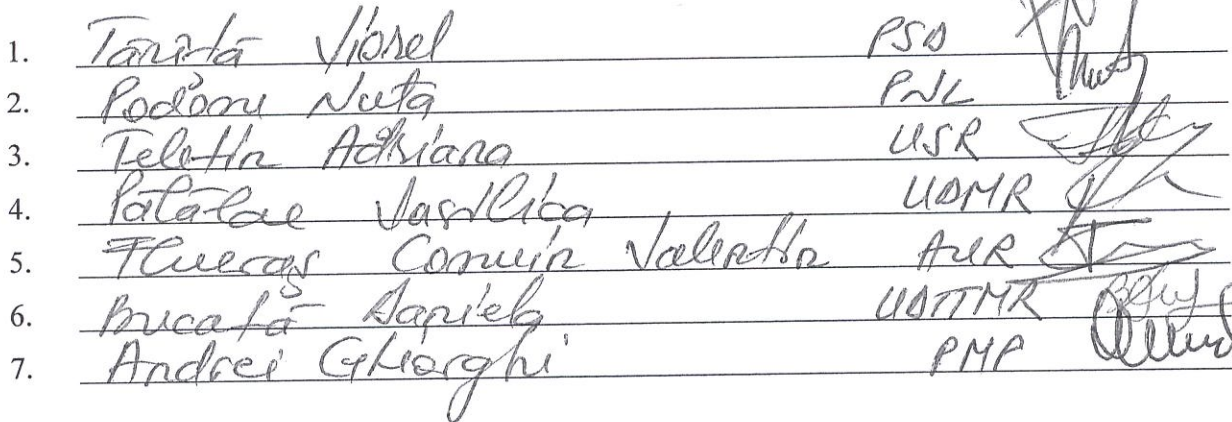 1. Tăriță Viorel PSD
2. Podoni Nuța PNL
3. Teletin Adriana USR
4. Pălălae Vasilica UDMR
5. Flueraș Cosmin Valentin AUR
6. Bucată Daniela UDTTMR
7. Andrei Gheorghi PMP